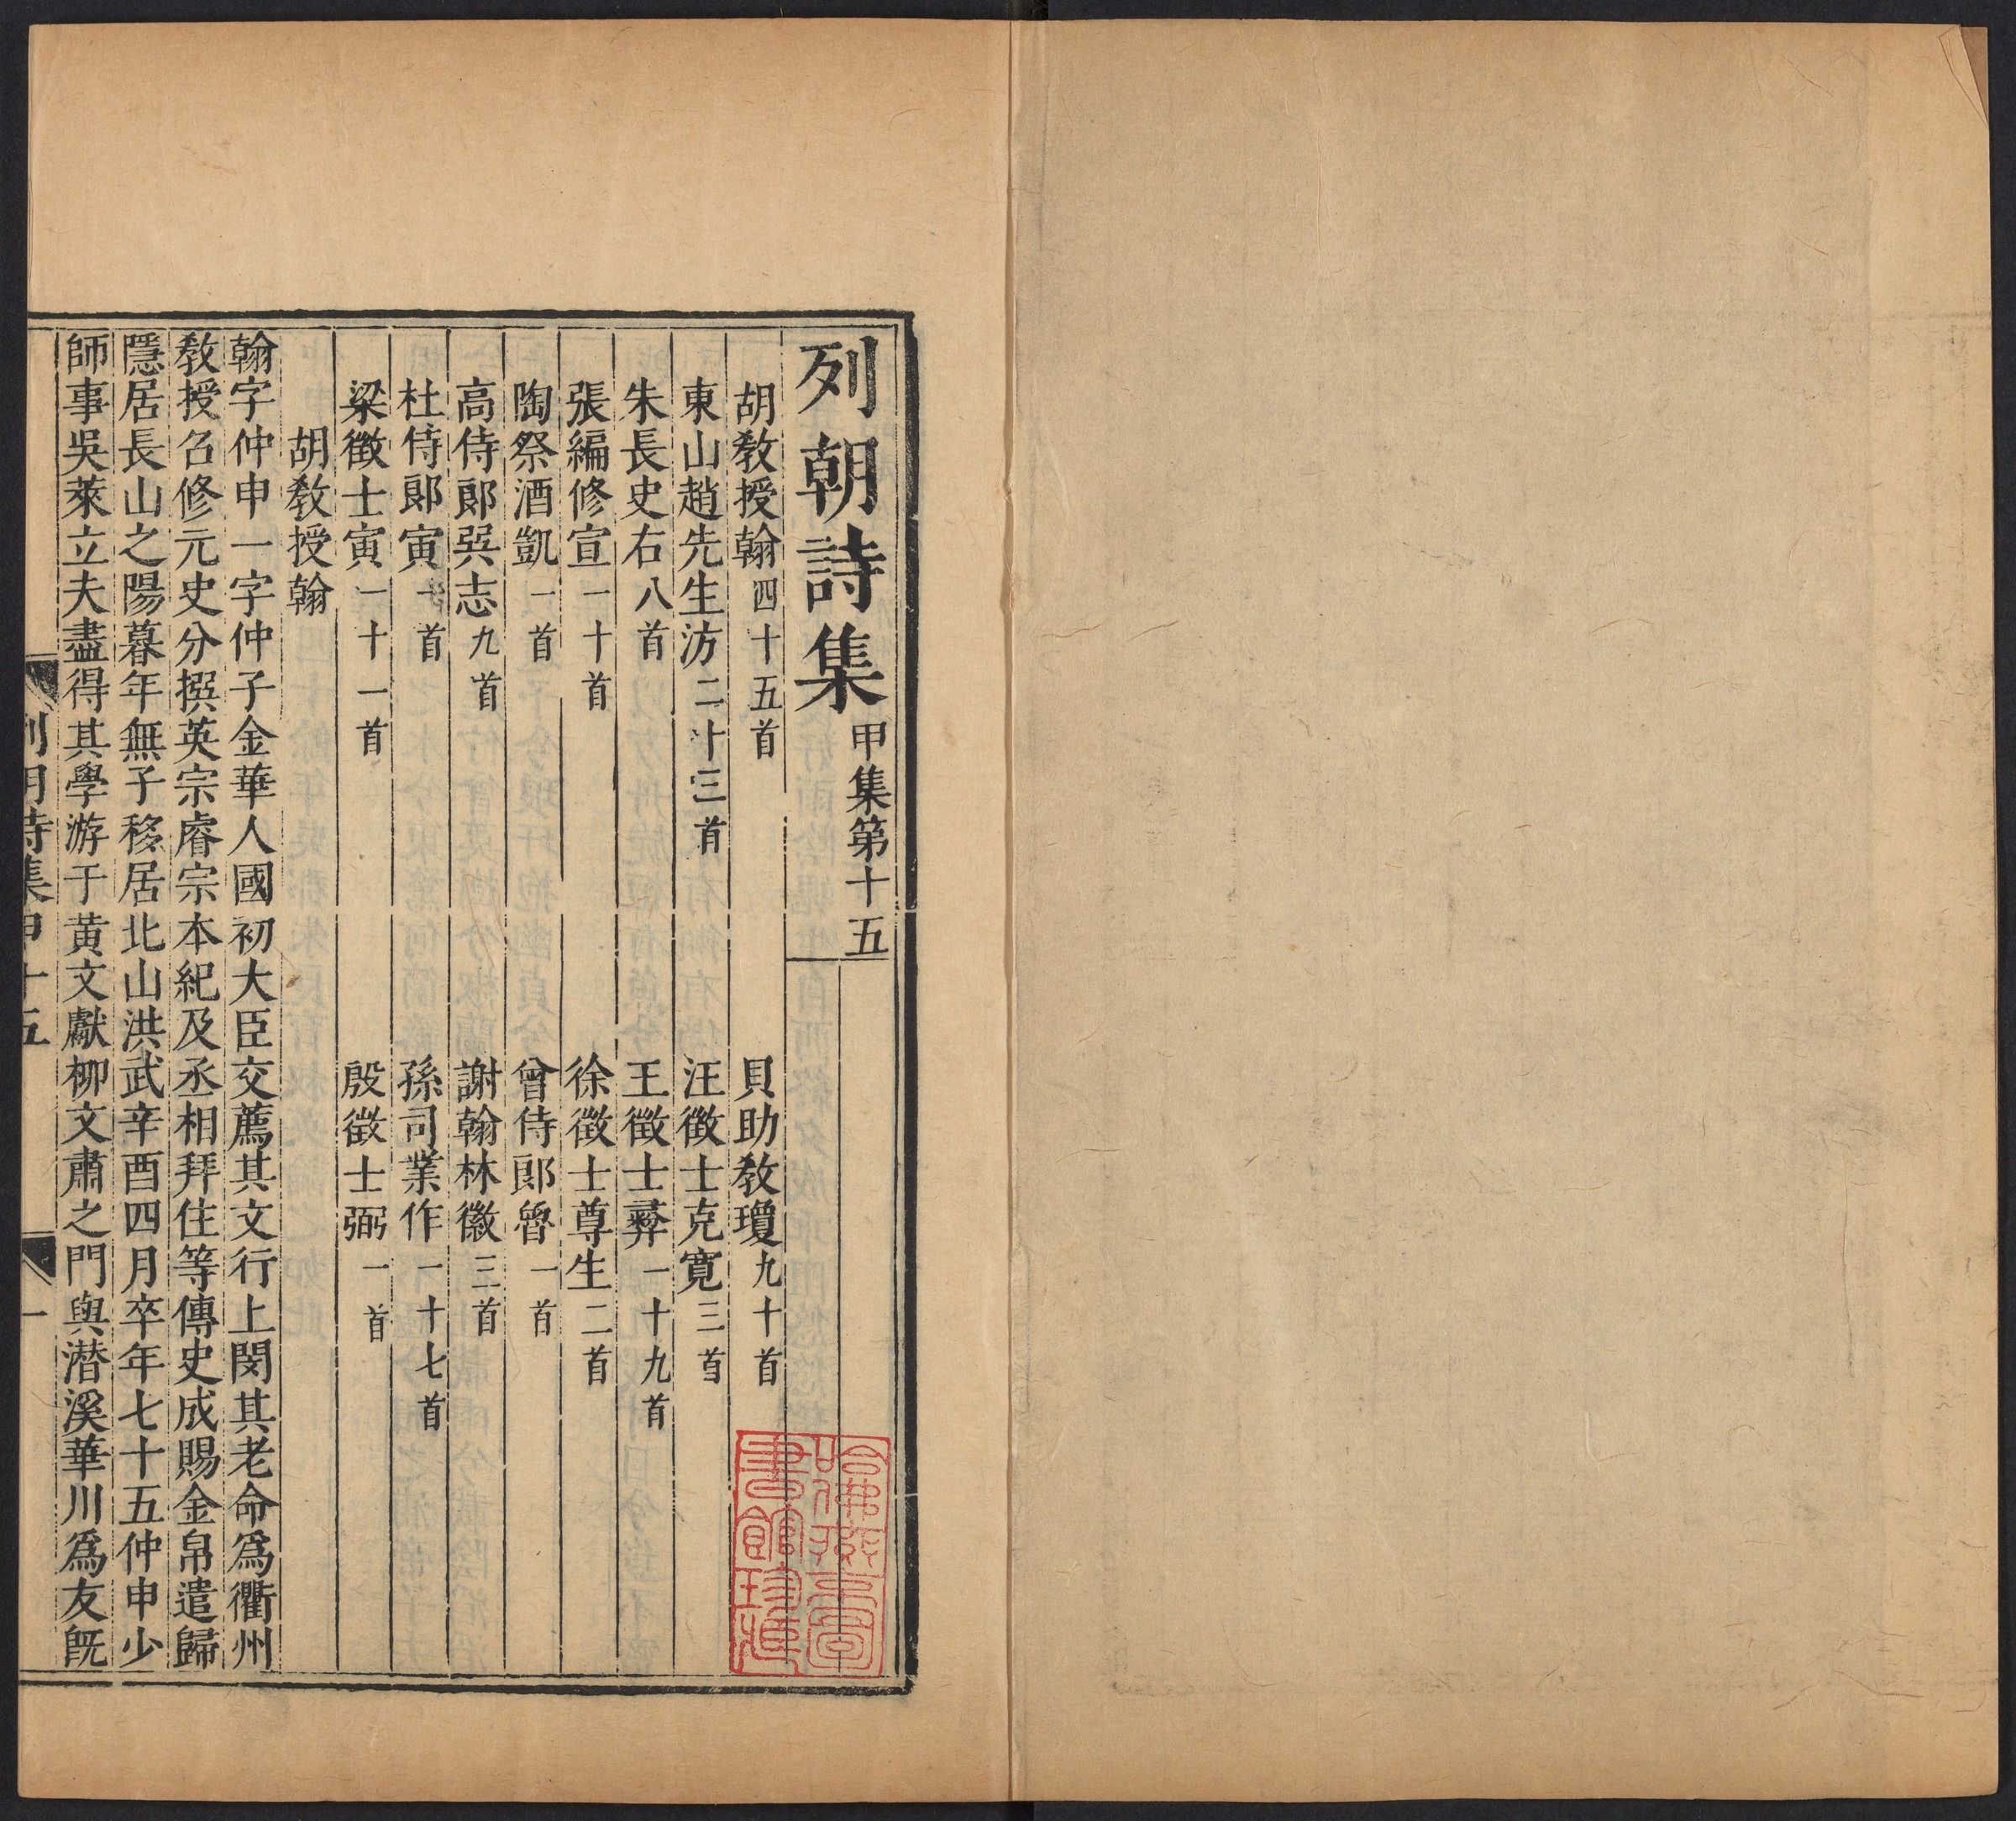 列朝詩集甲集第十五
胡敎授翰四十五首 貝助敎瓊九十首
東山趙先生汸二十三首 汪徵士克寬三首
朱長史右八首 王徵士彞一十九首
張編修宣一十首 徐徵士尊生二首
陶祭酒凱一首 曾侍郎魯一首
高侍郎巽志九首 謝翰林徽三首
杜侍郎寅一首 孫司業作一十七首
梁徵士寅一十一首 殷徵士弼一首
胡敎授翰
翰字仲申一字仲子金華人國初大臣交薦其文行上閔其老命爲衢州
敎授召修元史分撰英宗睿宗本紀及丞相拜住等傳史成賜金帛遣歸
隱居長山之陽暮年無子移居北山洪武辛酉四月卒年七十五仲申少
師事吳萊立夫盡得其學游于黃文獻柳文肅之門與潛溪華川爲友旣
列朝詩集甲十五 一
哈佛燕京圖書館珍藏